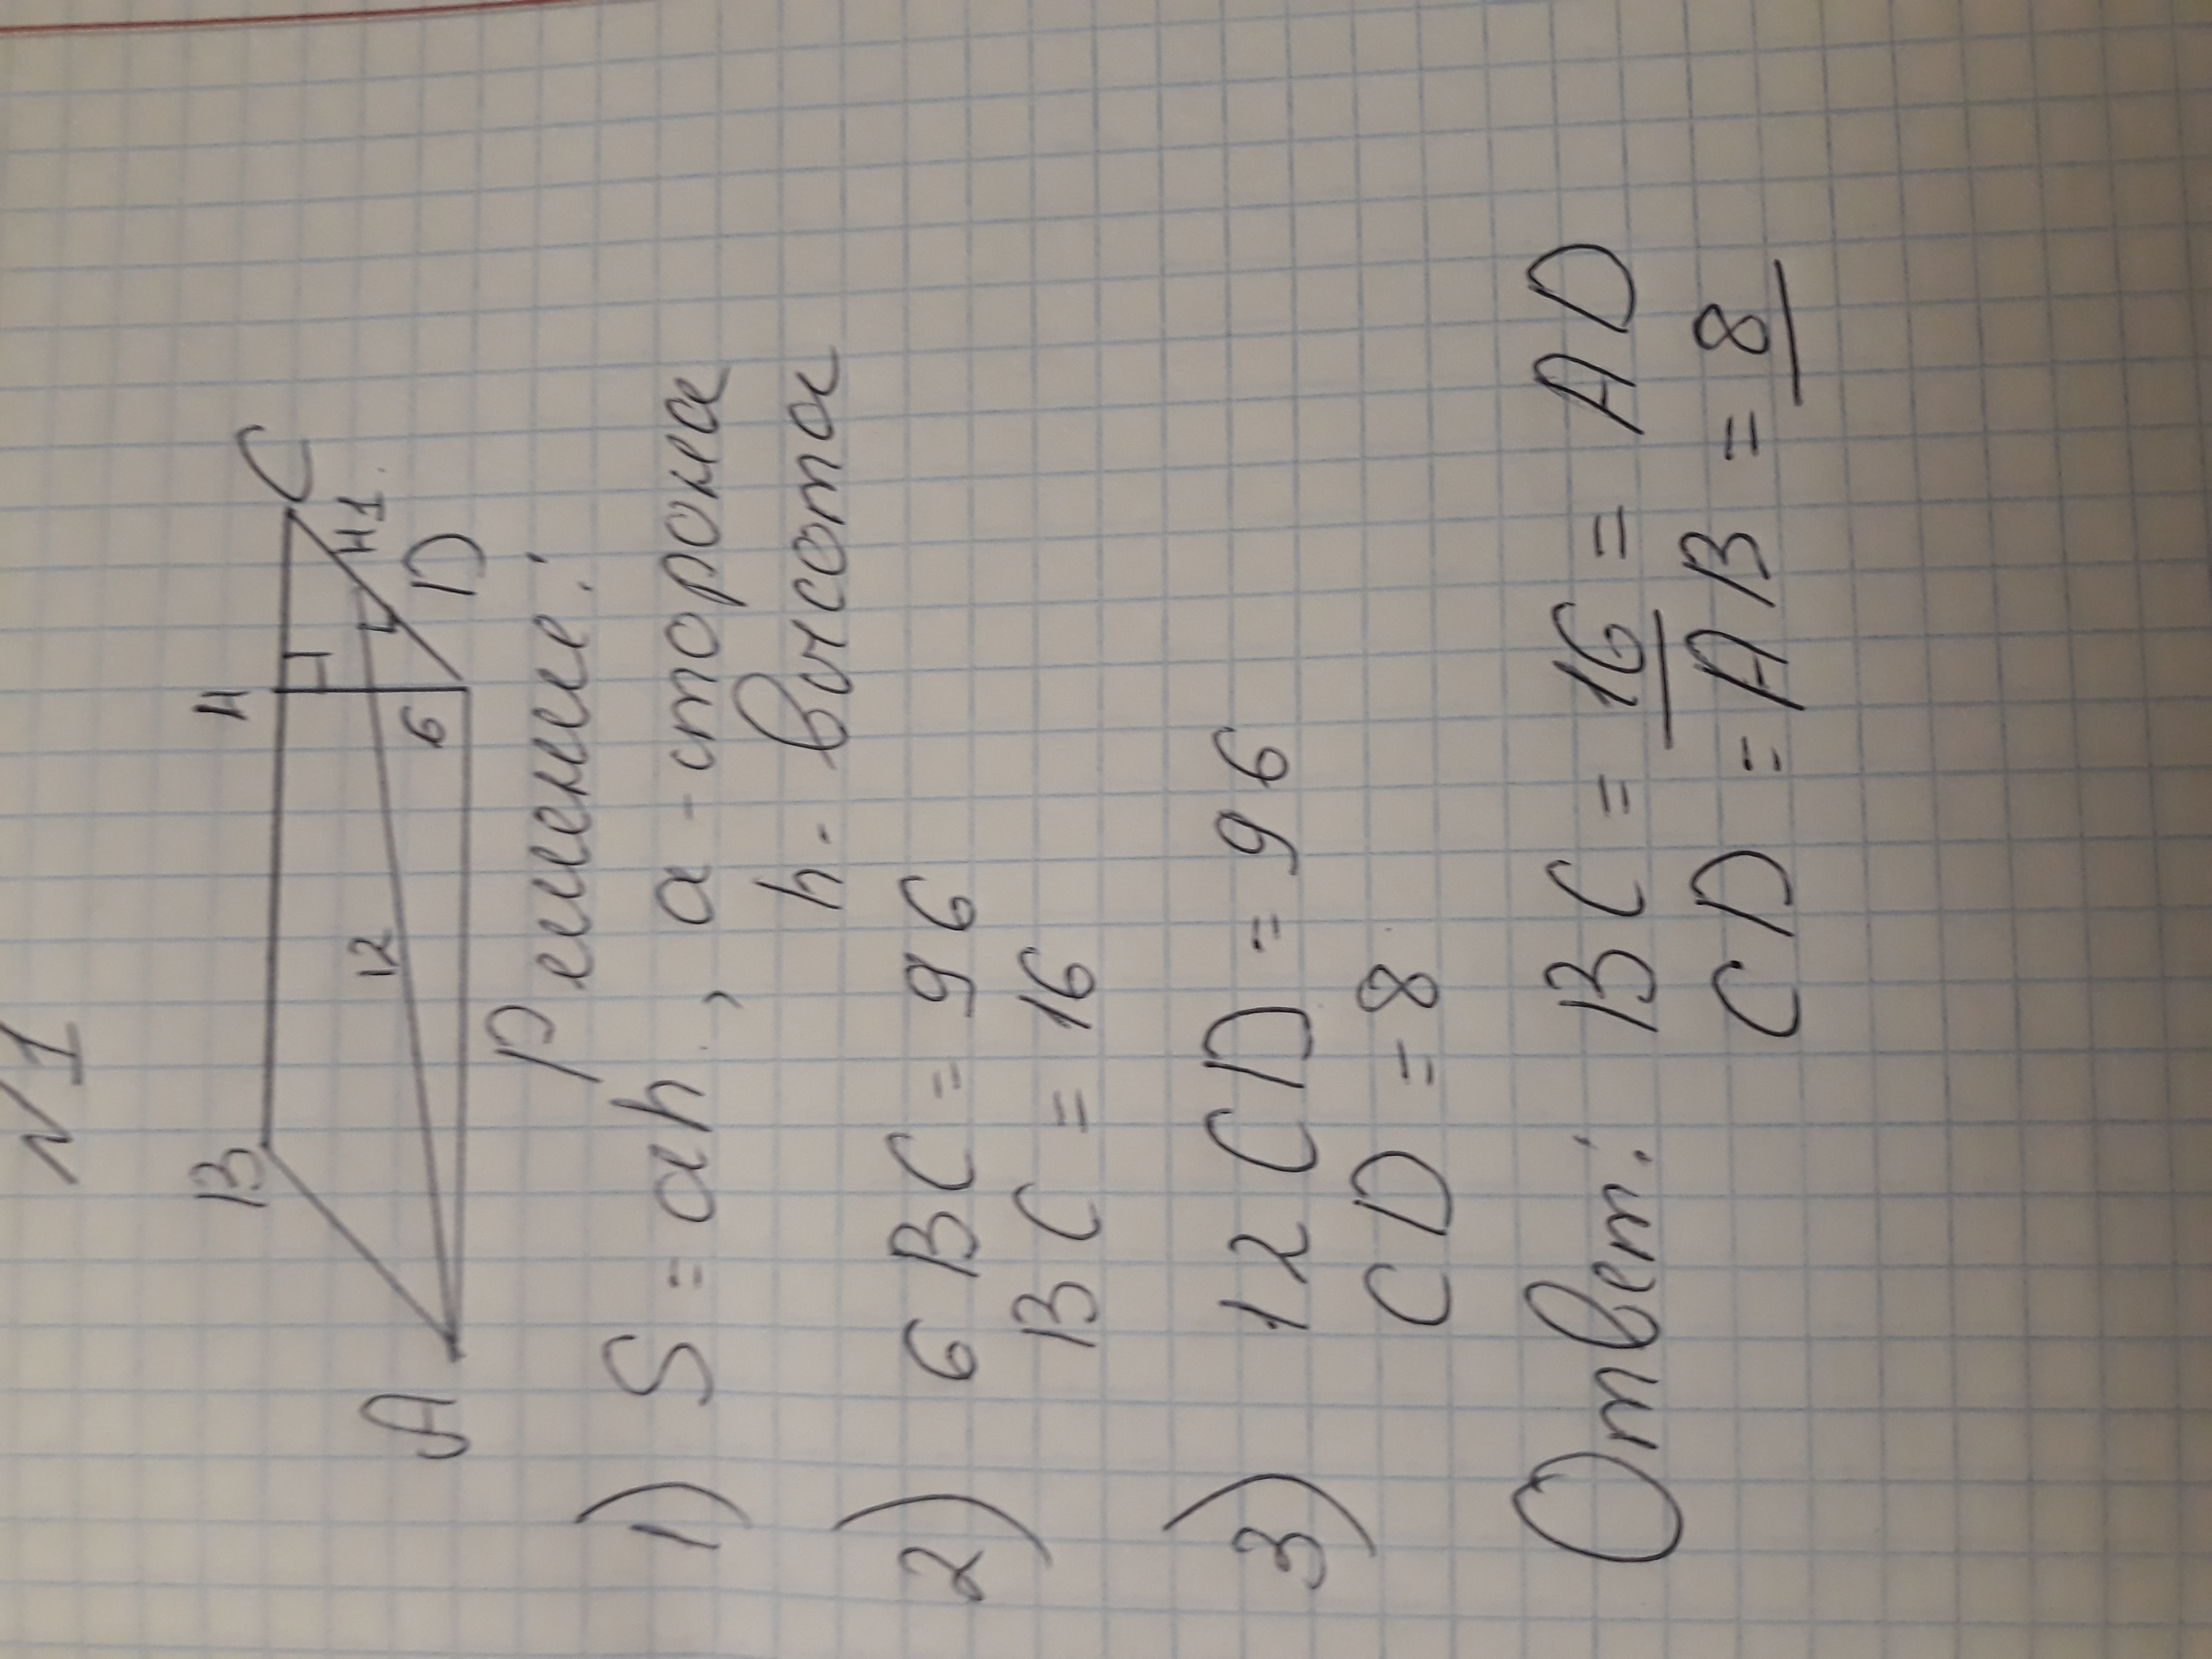 №1
B H C
12 H1
6
A D
Решение:
1) S = ah, a - сторона
h - высота
2) 6 BC = 96
BC = 16
3) 12 CD = 96
CD = 8
Ответ: BC = 16 = AD
CD = AB = 8